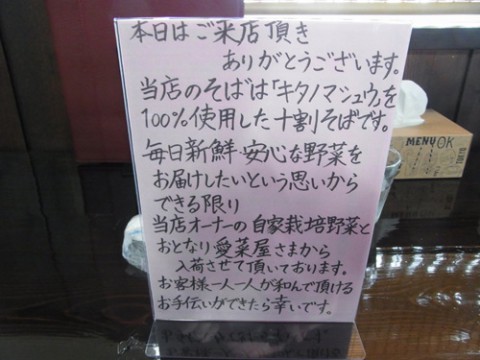 本日はご来店頂き
ありがとうございます。
当店のそばは「キタノマシュウ」を
100%使用した十割そばです。
毎日新鮮・安心な野菜を
お届けしたいという思いから
できる限り
当店オーナーの自家栽培野菜と
おとなり愛菜屋さまから
入荷させて頂いております。
お客様一人一人が和んで頂ける
お手伝いができたら幸いです。
MENU OK